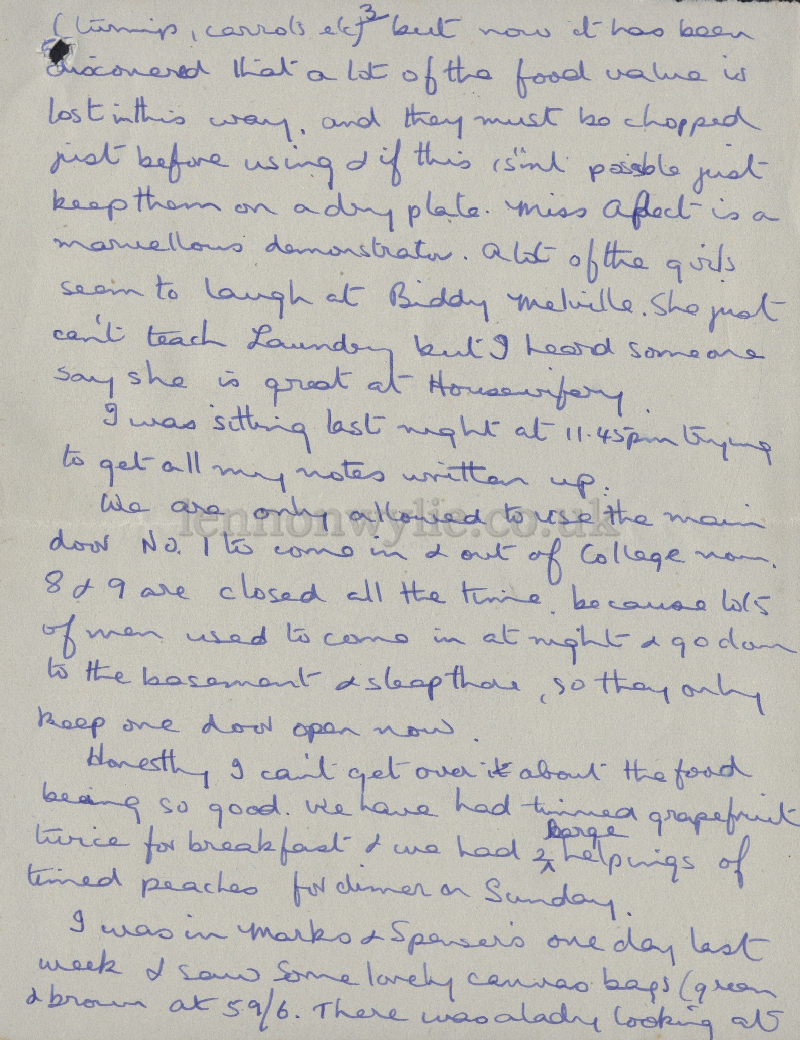 3
(turnip, carrots etc) but now it has been
discovered that a lot of the food value is
lost in this way, and they must be chopped
just before using & if this isn't possible just
keep them on a dry plate. Miss Afflect is a
marvellous demonstrator. A lot of the girls
seem to laugh at Biddy Melville. She just
can't teach Laundry but I heard someone
say she is great at Housewifery.
I was sitting last night at 11.45pm trying
to get all my notes written up.
We are only allowed to use the main
door No. 1 to come in & out of College now.
8 & 9 are closed all the time. because lots
of men used to come in at night & go down
to the basement & sleep there, so they only
keep one door open now.
Honestly I can't get over it about the food
being so good. We have had tinned grapefruit
twice for breakfast & we had 2 large helpings of
tinned peaches for dinner on Sunday.
I was in Marks & Spensers one day last
week & saw some lovely canvas bags (green
& brown at 59/6. There was a lady looking at
lennonwylie.co.uk